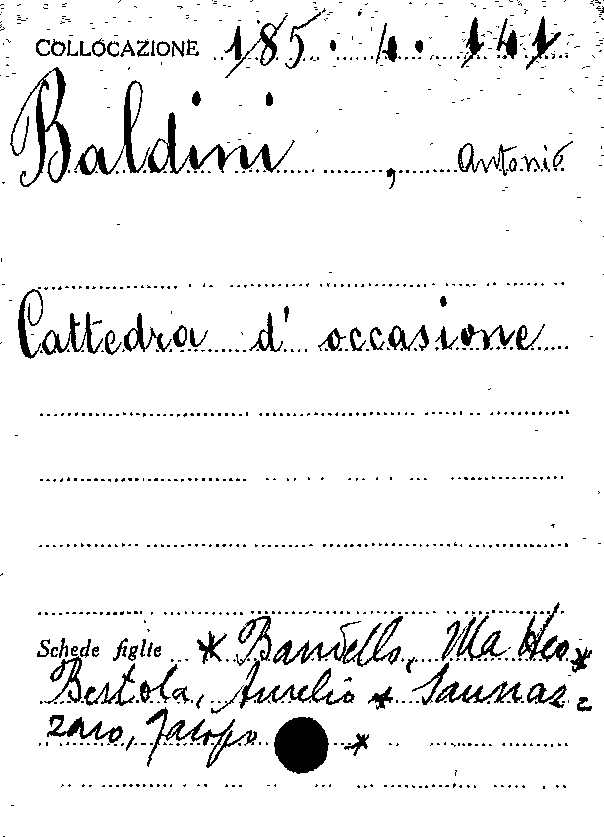 COLLOCAZIONE 185.4.141
Baldini, Antonio
Cattedra d'occasione
Schede figlie * Bandello, Matteo *
Bertola, Aurelio * Sannaz=
zaro, Jacopo *